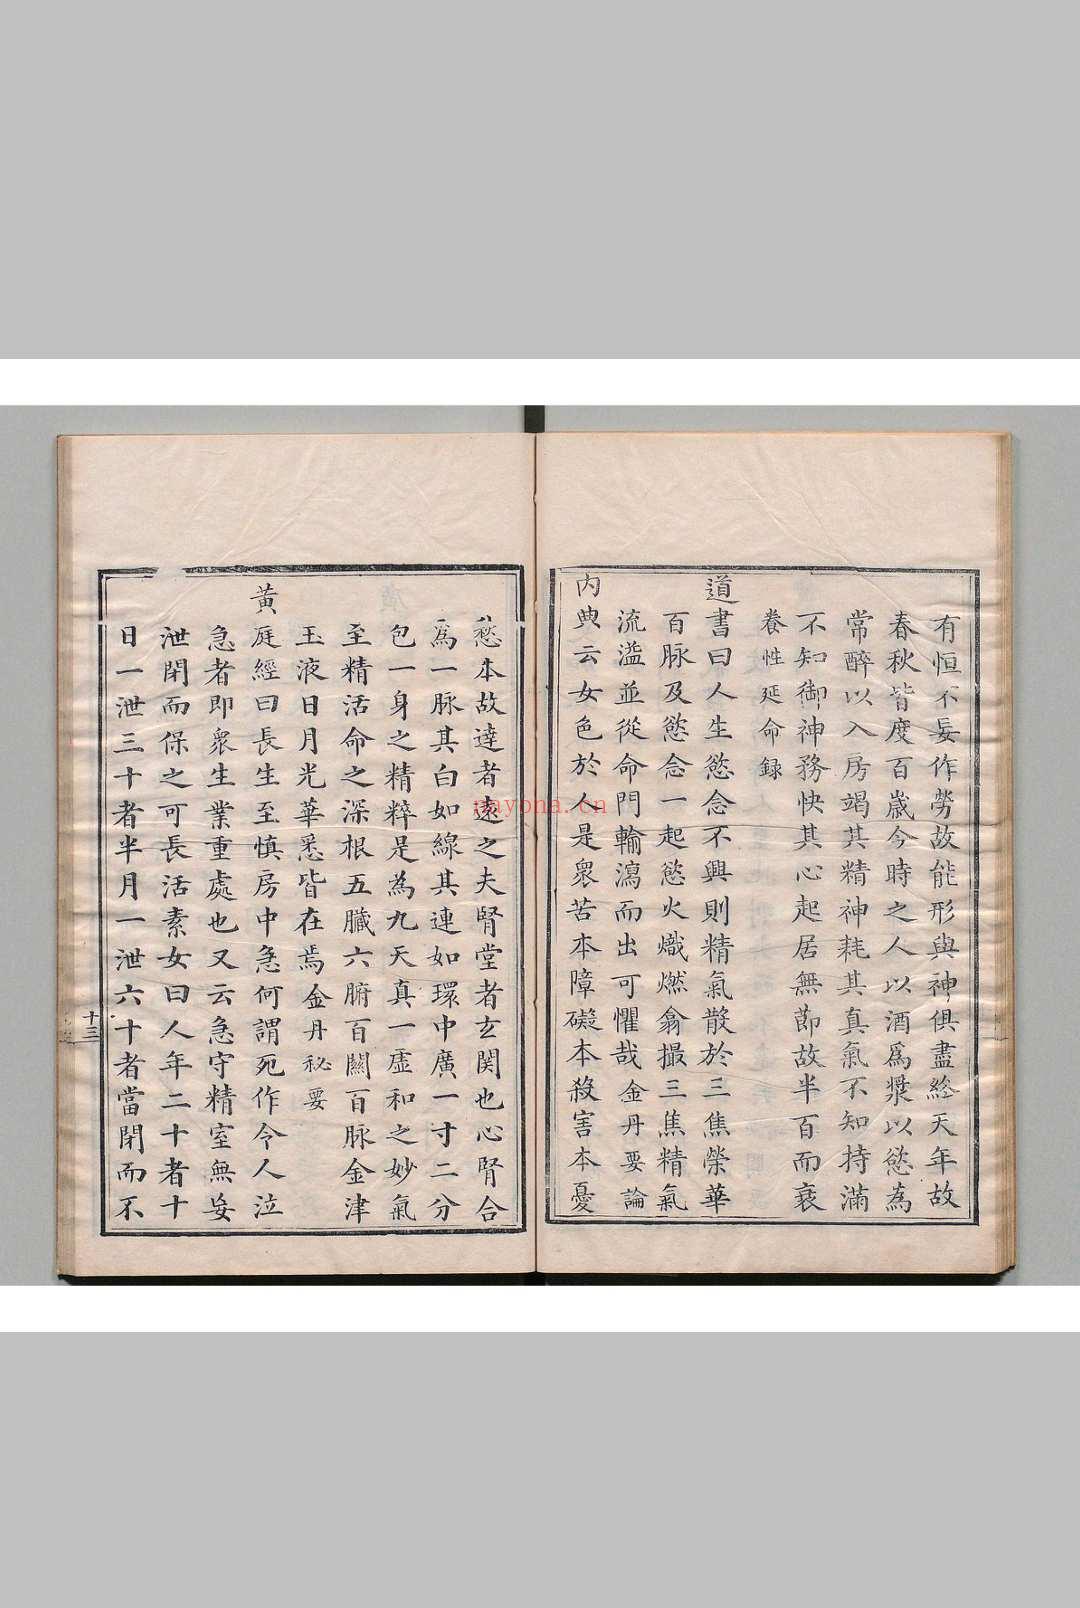 有恒不妄作勞故能形與神俱盡終天年故
春秋皆度百歲今時之人以酒爲漿以慾為
常醉以入房竭其精神耗其真氣不知持滿
不知御神務快其心起居無節故半百而衰
養性延命録
道書曰人生慾念不興則精氣散於三焦榮華
百脉及慾念一起慾火熾燃翕撮三焦精氣
流溢並從命門輸瀉而出可懼哉金丹要論
内典云女色於人是衆苦本障礙本殺害本憂
愁本故達者遠之夫腎堂者玄関也心腎合
爲一脉其白如線其連如環中廣一寸二分
包一身之精粹是為九天真一虛和之妙氣
至精活命之深根五臓六腑百關百脉金津
玉液日月光華悉皆在焉金丹秘要
黄庭經曰長生至慎房中急何謂死作令人泣
急者即衆生業重處也又云急守精室無妄
泄閉而保之可長活素女曰人年二十者十
日一泄三十者半月一泄六十者當閉而不
十三
nayoha.cn